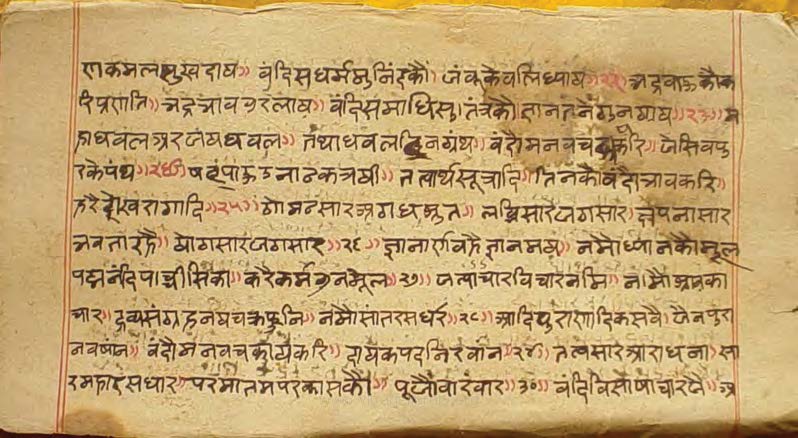 णकमलसुखदाय॥ वंदिसधर्ममुनिंदकौं॥ जंबूकेवलिध्याय॥२२॥ भद्रबाऊकौक
रिप्रणाति॥ भद्रभावउरलाय॥ वंदिसमाधिसुतंत्रकौ॥ ज्ञानतनेगुनगाय॥२३॥ म
हाधवलअरजयधवल॥ तथाधवलजिनग्रंथ॥ वंदौमनवचकायकरि॥ जेसिवपु
रकेपंथ॥२४॥ षट्पाऊडनाटकत्रयी॥ तत्वार्थसूत्रादि॥ तिनकौवंदौभावकरि॥
हरैदोषरागादि॥२५॥ गोमटसारअगधश्रुत॥ लब्धिसारजगसार॥ क्षपनासार
भवतारहै॥ योगसारजगसार॥२६॥ ज्ञानार्णवहैज्ञानमय॥ नमोध्यानकौमूल
पद्मनंदिपाचीसिका॥ करैकर्मउनमूल॥२७॥ जत्याचारविचारनमि॥ नमौश्रावका
चार॥ द्रव्यसंग्रहनयचक्रफुनि॥ नमौसांतरसधर॥२८॥ आदिपुराणादिकसवै॥ जैनपुरा
नवषांन॥ वंदौमनवचकायकरि॥ दायकपदनिरवांन॥२९॥ तत्वसारआराधना॥ सा
रमहारसधार॥ परमातमपरकासकौं॥ पूजौवारंवार॥३०॥ वंदिविसाषाचारजै॥ अ